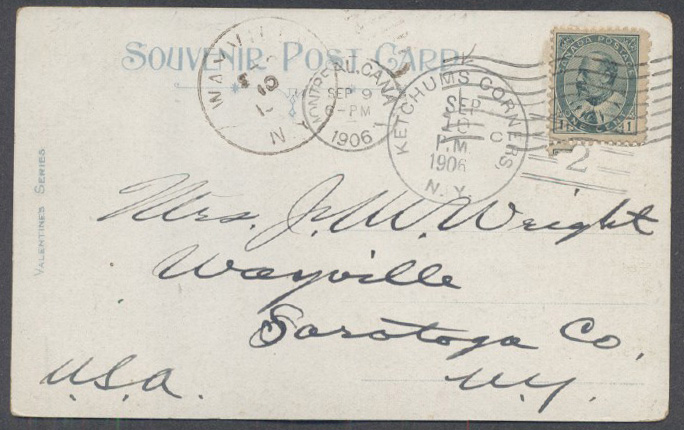 SOUVENIR POST CARD
VALENTINES SERIES
WAYVI
10
N
MONTREAL, CANA
SEP 9
6-PM
1906
KETCHUMS CORNERS,
SEP
P.M
C
1906
N.Y.
2
CANADA POSTAGE
1 ONE CENT 1
Mrs. J. W. Wright
Wayville
Saratoga Co.
N.Y.
U.S.A.